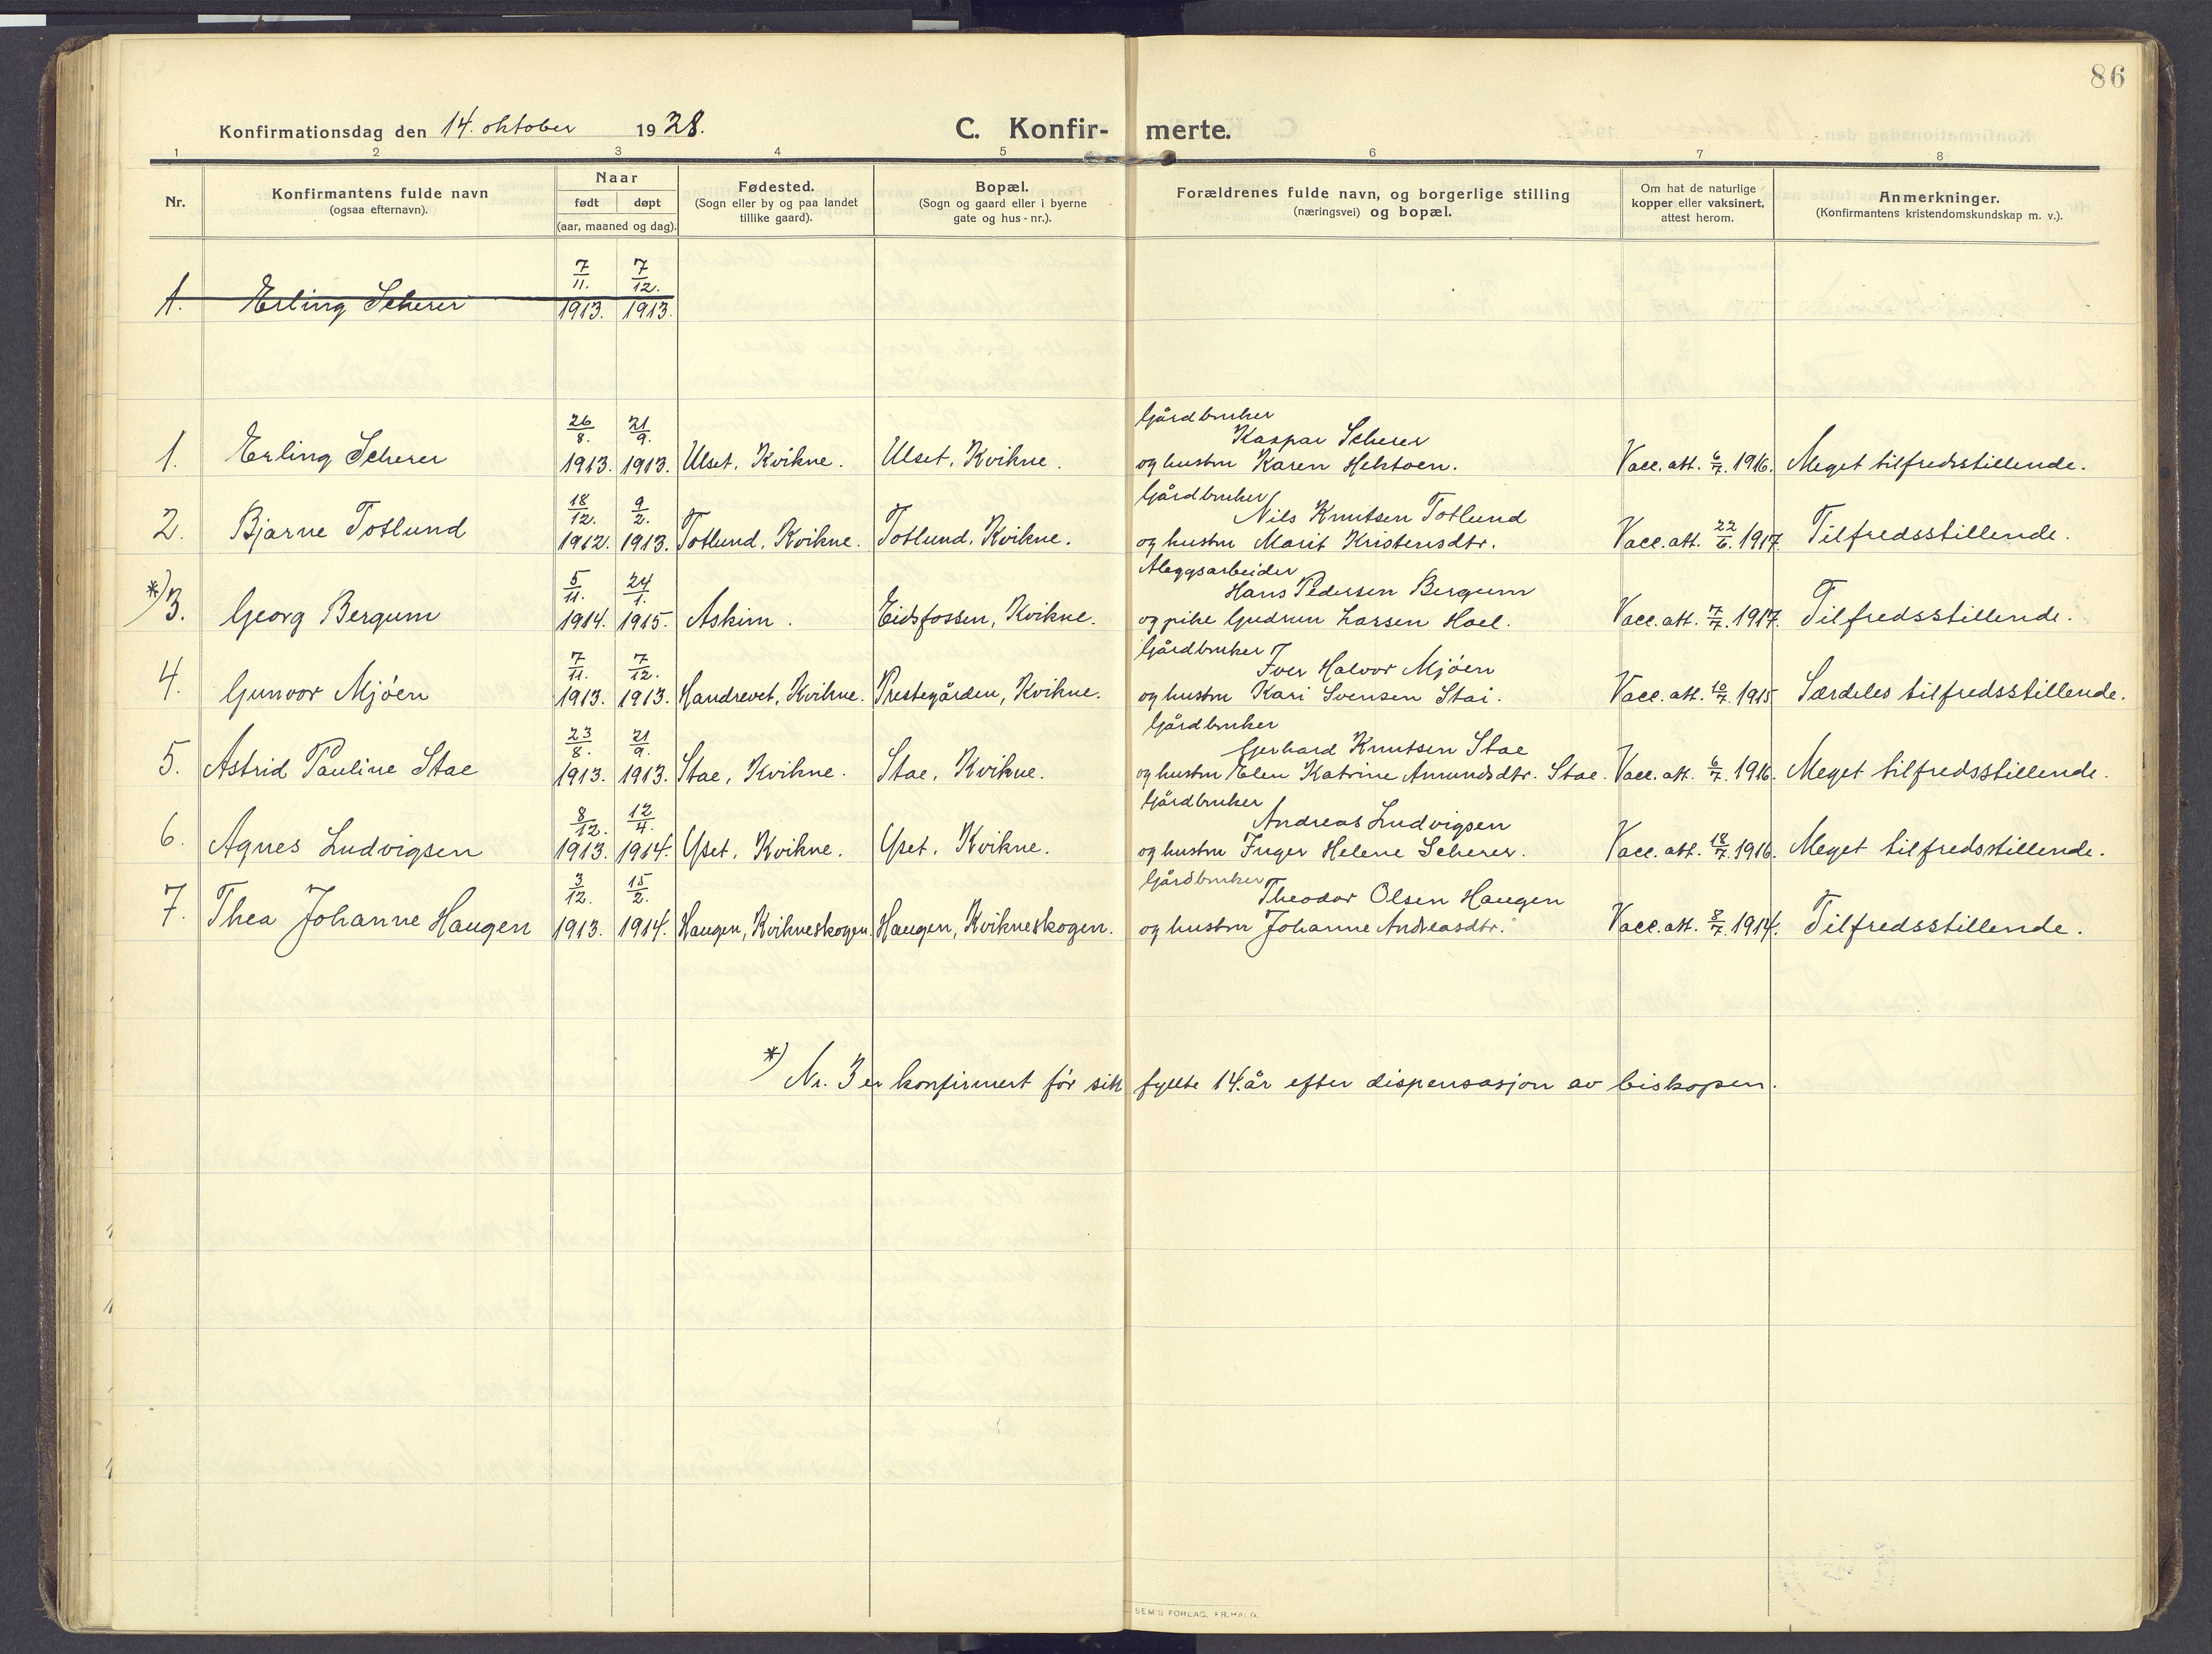 86
Konfirmationsdag den 14. oktober 1928. C. Konfir- merte.
1 2 3 4 5 6 7 8
Nr. Konfirmantens fulde navn (ogsaa efternavn). Naar født døpt (aar, maaned og dag). Fødested. (Sogn eller by og paa landet tillike gaard). Bopæl. (Sogn og gaard eller i byerne gate og hus-nr.). Forældrenes fulde navn, og borgerlige stilling (næringsvei) og bopæl. Om hat de naturlige kopper eller vaksinert, attest herom. Anmerkninger. (Konfirmantens kristendomskundskap m. v.).
7/11. 7/12.
1. Erling Scherer 1913. 1913.
26/8. 21/9. Gårdbruker
Kaspar Scherer
1. Erling Scherer 1913. 1913. Ulset, Kvikne. Ulset, Kvikne. og hustru Karen Hektoen. Vacc. att. 6/7. 1916. Meget tilfredsstillende.
18/12. 9/2. Gårdbruker
Nils Knutsen Totlund
2. Bjarne Totlund 1912. 1913. Totlund, Kvikne. Totlund, Kvikne. og hustru Marit Kristensdtr. Vacc. att. 22/6. 1917. Tilfredsstillende.
5/11. 24/1. Aleggsarbeider
Hans Pedersen Bergum
*) 3. Georg Bergum 1914. 1915. Askim. Eidsfossen, Kvikne. og pike Gudrun Larsen Hoel. Vacc. att. 7/7. 1917. Tilfredsstillende.
7/11. 7/12. Gårdbruker
Iver Halvor Mjöen
4. Gunvor Mjöen 1913. 1913. Handrevet, Kvikne. Prestegården, Kvikne. og hustru Kari Svensen Stai. Vacc. att. 10/7. 1915 Særdeles tilfredsstillende.
23/8. 21/9. Gårdbruker
Gerhard Knutsen Stae
5. Astrid Pauline Stae 1913. 1913. Stae, Kvikne. Stae, Kvikne. og hustru Elen Katrine Amundsdtr. Stae. Vacc. att. 6/7. 1916. Meget tilfredsstillende.
8/12. 12/4. Gårdbruker
Andreas Ludvigsen
6. Agnes Ludvigsen 1913. 1914. Yset, Kvikne. Yset, Kvikne. og hustru Inger Helene Scherer. Vacc. att. 18/7. 1916. Meget tilfredsstillende.
3/12. 15/2. Gårdbruker
Theodor Olsen Haugen
7. Thea Johanne Haugen 1913. 1914. Haugen, Kvikneskogen. Haugen, Kvikneskogen. og hustru Johanne Andreasdtr. Vacc. att. 8/7. 1914. Tilfredsstillende.
*) Nr. 3 er konfirmert för sitt fyllte 14. år efter dispensasjon av biskopen.
SEM'S FORLAG, FR.HALD.